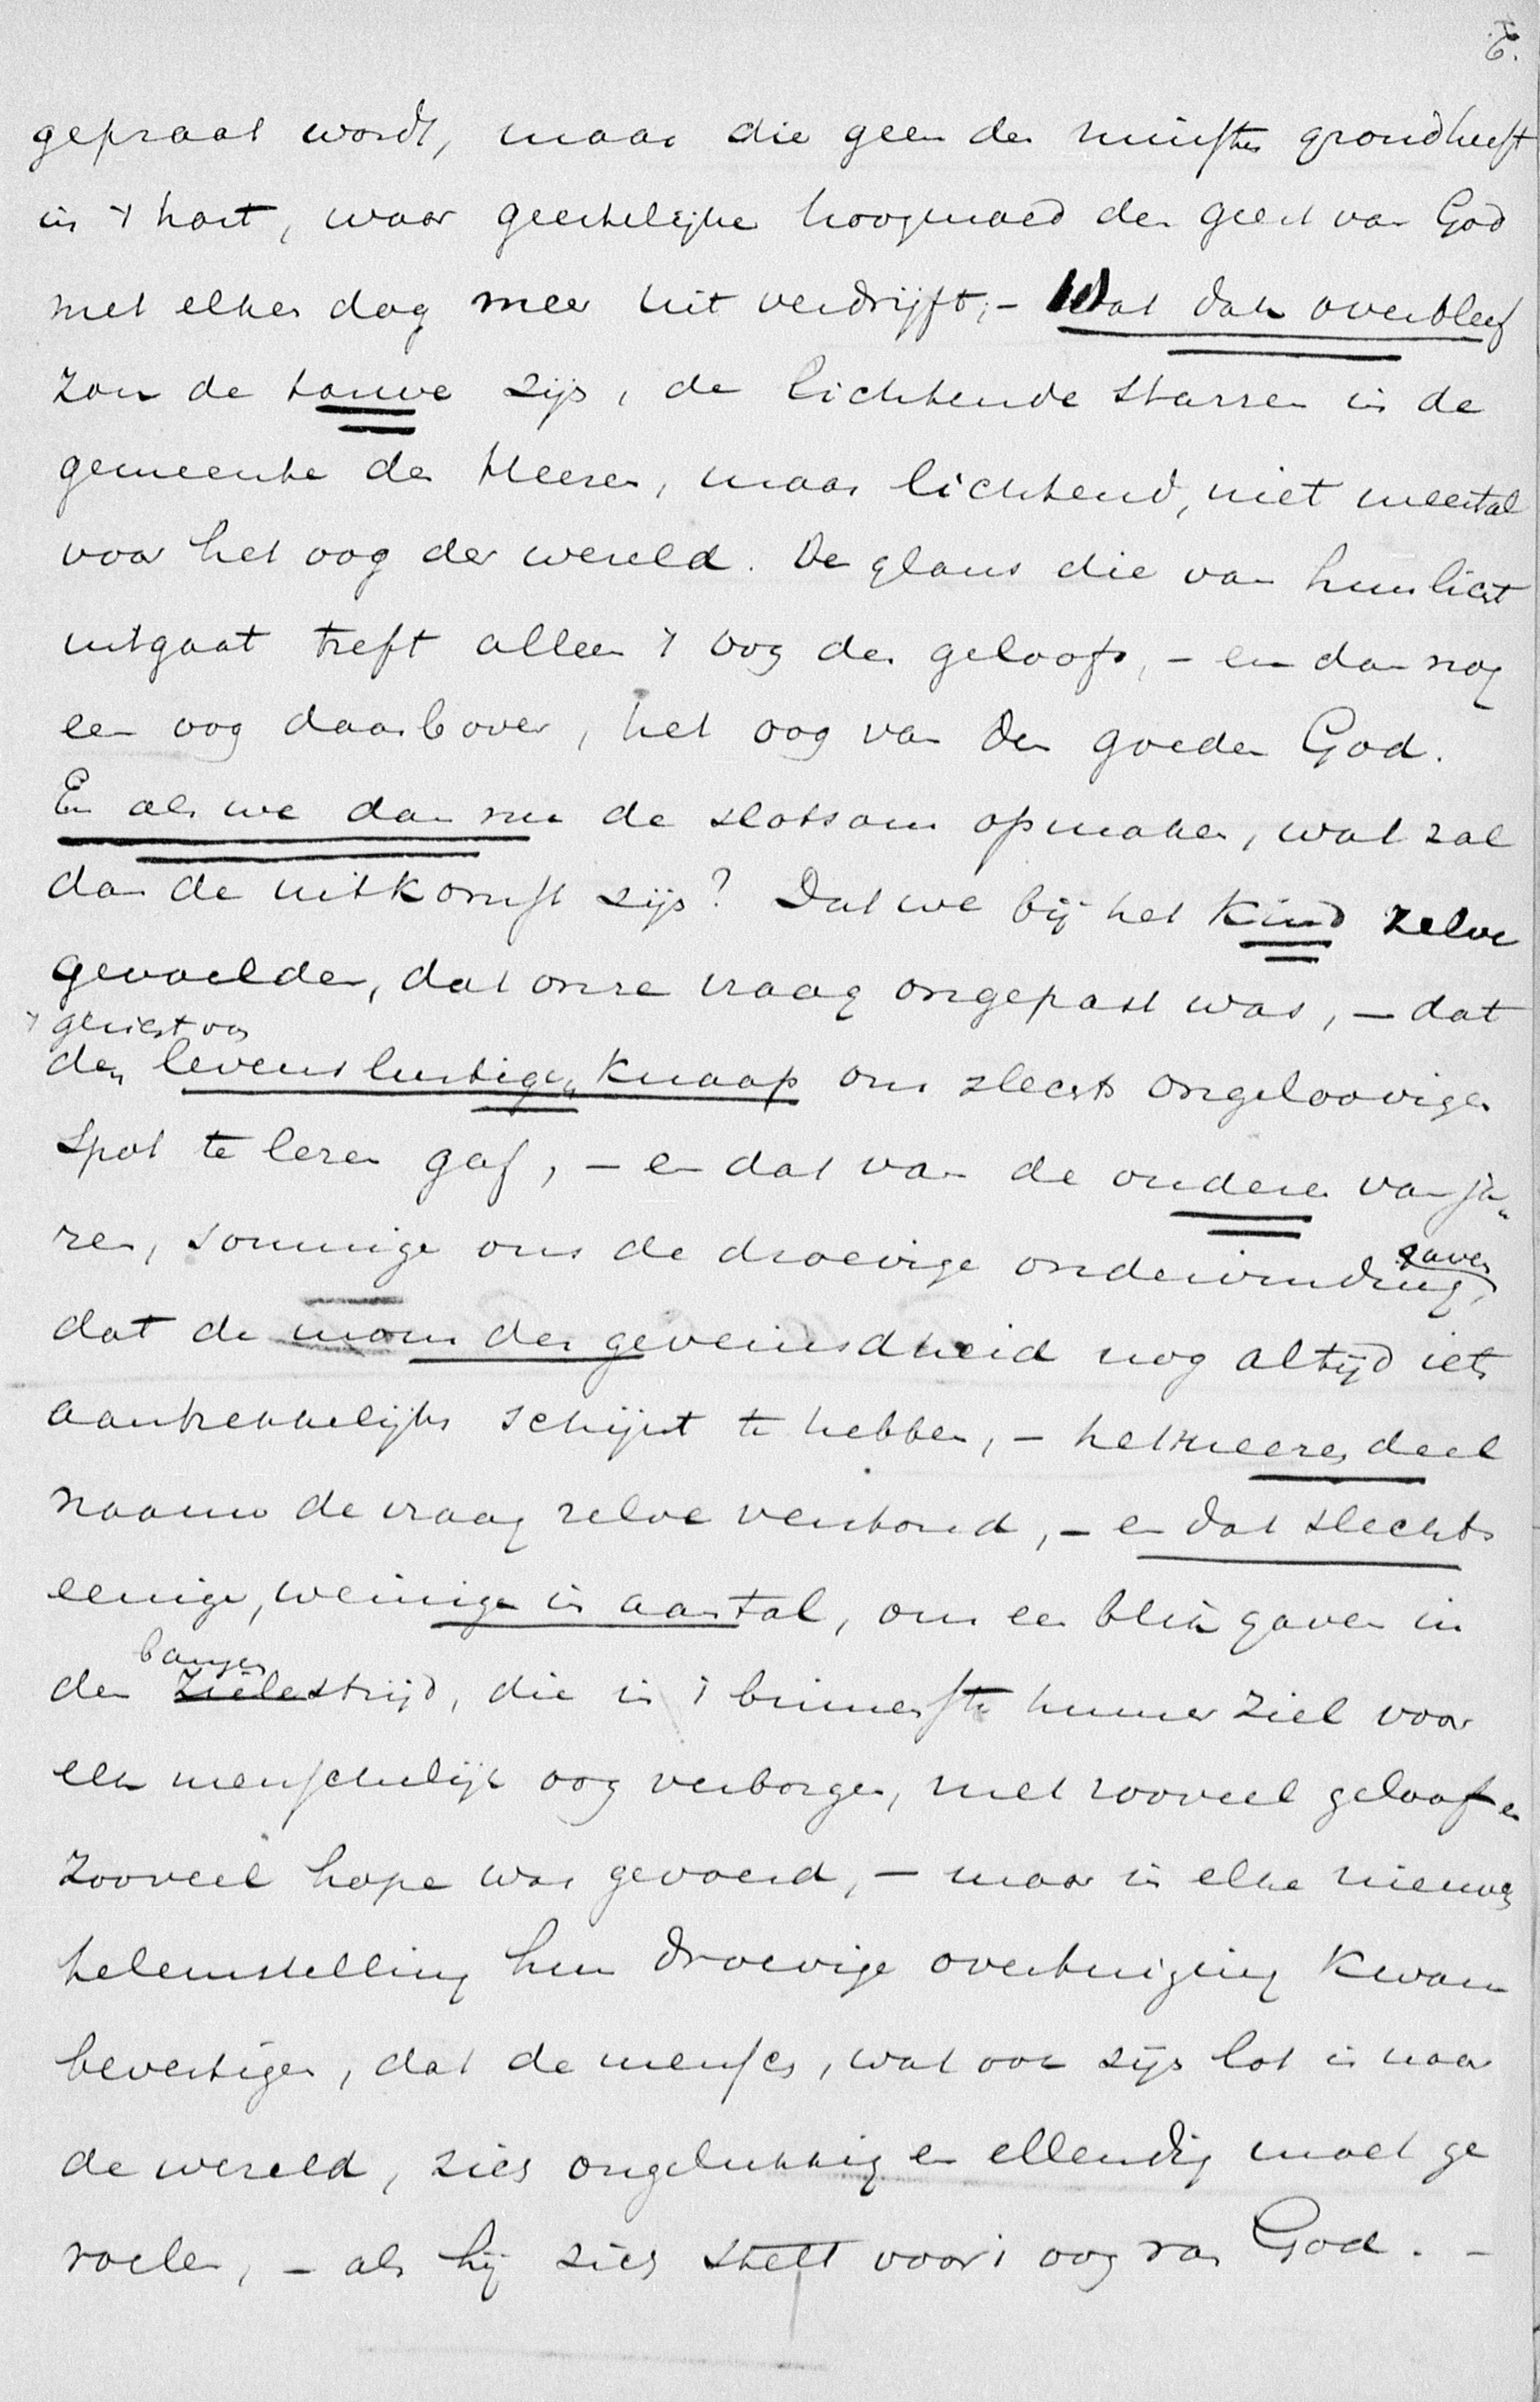 6.
gepraat wordt, maar die geen den minsten grond heeft
in 't hart, waar geestelijke hoogmoed den geest van God
met elken dag meer uit verdrijft; – Wat dan overbleef
zou de trouwe zijn, de lichtende starren in de
gemeente des Heeren, maar lichtend, niet meestal
voor het oog der wereld. De glans die van hun licht
uitgaat treft alleen 't oog des geloofs, – en dan nog
een oog daarboven, het oog van den goeden God.
En als we dan nu de slotsom opmaken, wat zal
dan de uitkomst zijn? Dat we bij het kind zelve
gevoelden, dat onze vraag ongepast was, – dat
't
den levenslustigen knaap ons slechts ongeloovigen
spot te lezen gaf, – en dat van de ouderen van ja„
ren, sommige ons de droevige ondervinding gaven,
dat de mom der geveinsdheid nog altijd iets
aantrekkelijks schijnt te hebben, – het meerendeel
naauw de vraag zelve verstond, – en dat slechts
eenige, weinige in aantal, ons een blik gaven in
den bangen zielestrijd, die in 't binnenste hunner ziel voor
elk menschelijk oog verborgen, met zooveel geloof en
zooveel hope was gevoerd, – maar in elke nieuwe
teleurstelling hun droevige overtuiging kwam
bevestigen, dat de mensch, wat ook zijn lot is naar
de wereld, zich ongelukkig en ellendig moet ge
voelen, – als hij zich stelt voor 't oog van God. –